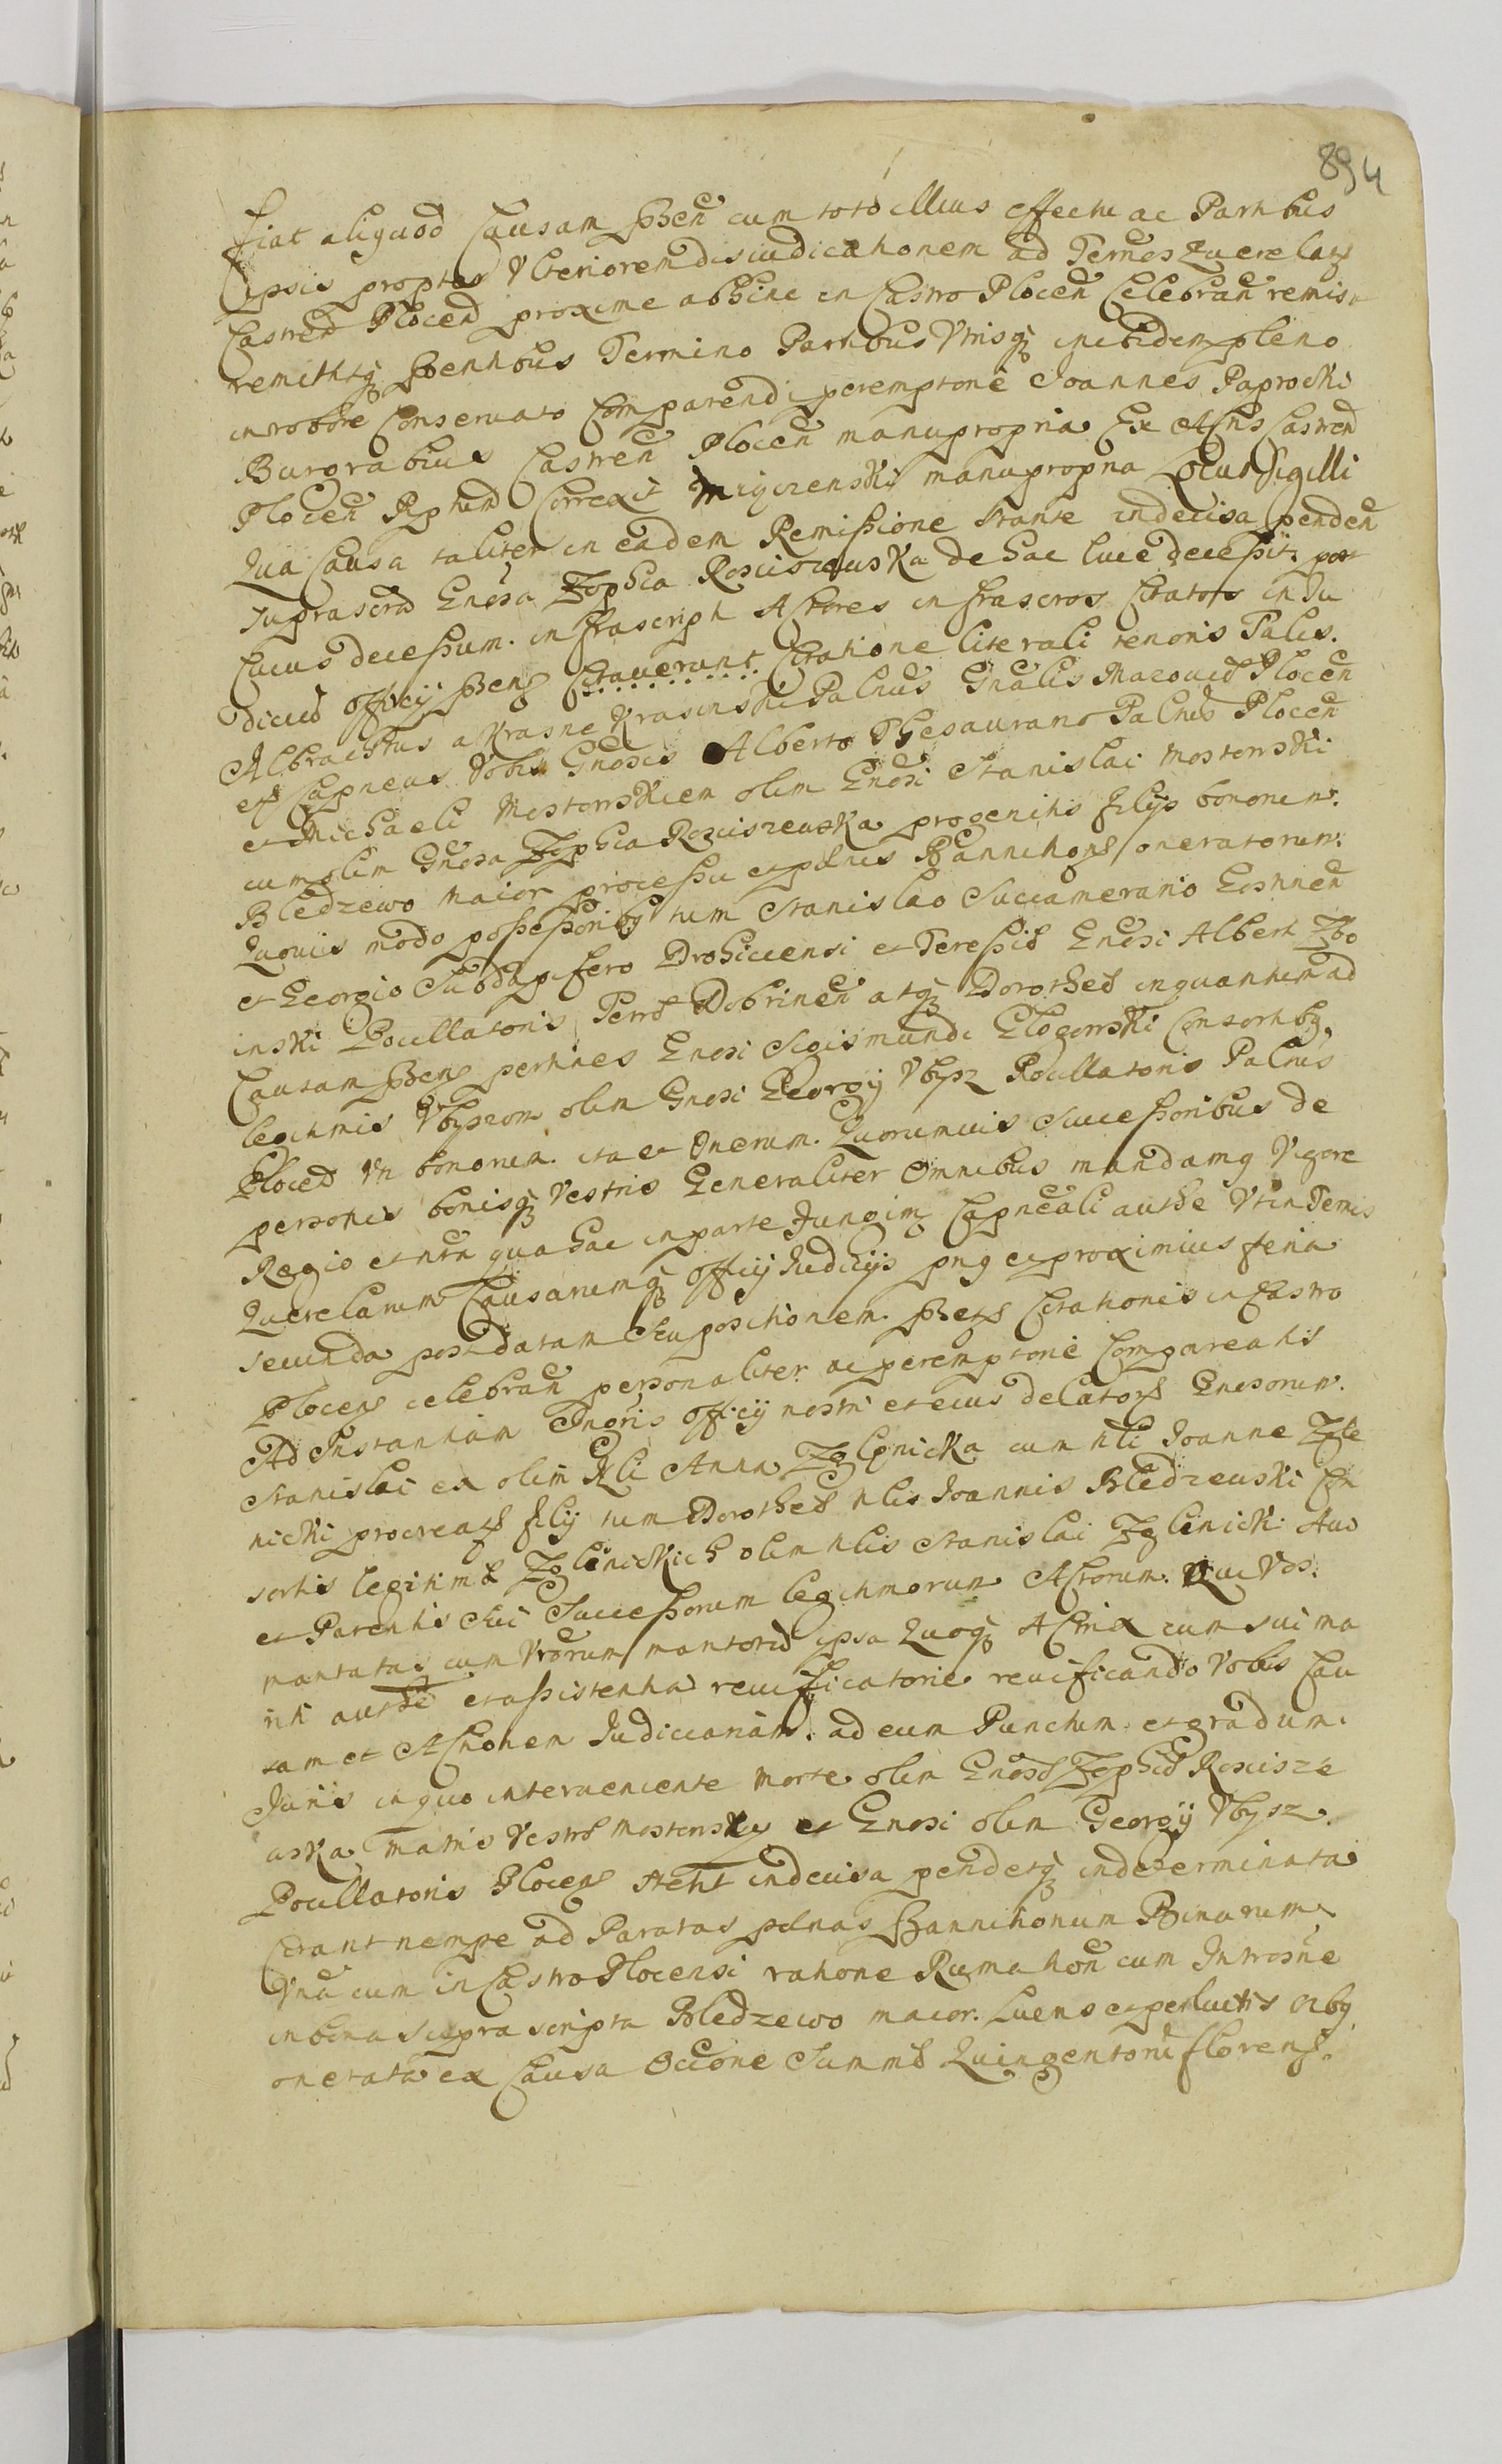 894
fiat aliquod Causam pñten cum toto illius effectu ac Partibus
ipsis propter Vlteriorem disiudicationem ad Termos Querelarz
Castren Plocen proxime abhinc in Castro Plocen Celebran remis
remittitqz pñtentibus Termino Partibus Vtrisqz inibidem pleno
in robore Conseruato Comparendi peremptorie Joannes Paprocki
Burgrabius Castren Plocen manupropria Ex Actis Castren
Plocen Rptum Correxit Migorzenski manupropria Locus Sigilli
Qua Causa taliter in eadem Remissione stante indecisa penden
suprascra Gnosa Zophia Rosciszewska de hac luce decessit post
Cuius decessum infrascript Actores infrascros Citatos in Ju
dicio officij pñtens Citauerunt Citatione literali tenoris Talis.
Albrachtus a Krasne Krasinski Palnus Gnalis Mazouiæ Plocen
et Capneus Vobis Gnosis Alberto Thesaurario Palnus Plocen
et Michaeli Mostowskiem olim Gnosi Stanislai Mostowski
cum olim Gnosa Zophia Rosciszewska progenitis filijs bonorum
Bledzewo maior processu et pænis Bannitionis oneratorum
Quouis modo possessoribus tum Stanislao Succamerario Gostinen
et Georgio Subdapifero Drohiccensi et Teressiæ Gnosi Albert Zbo
inski Pocillatoris Terræ Dobrinen atqz Dorotheæ inquantum ad
Causam pñtens pertines Gnosi Sigismundi Glogowski Consortibus
legitimis Vbyszom olim Gnosi Georgij Vbysz Pocillatoris Palnus
Ploceñ Vti bonorum ita et Onerum Quorumuis Successoribus de
personis bonisqz Vestris Generaliter Omnibus mandamus Vigore
Regio et nrã qua hac in parte Jungim Capneali authe Vt in Termis
Querelarum Causarumqz officij Judicijs png et proximius feria
secunda post datam Seu positionem pñtens Citationis in Castro
Plocens celebran personaliter ac peremptorie Compareatis
Ad Instantiam Instigoris officij nostri et eius delatoris Gnosorum
Stanislai ex olim Nli Anna Zglenicka cum Nli Joanne Zgle
nicki procreati filij tum Dorotheæ Nlis Joannis Bledzewski Con
sortis legitimæ Zglenickich olim Nlis Stanislai Zglenicki Aui
et Parentis Sui Successorum legitimorum Actorum. Qui Vos
maritatas cum Vrorum maritorum ipsa Quoqz Actrix cum sui ma
riti authe et assistentia reuificatorie reuificando Vobis Cau
sam et Actionem Judiciariam ad eum Punctum et gradum
Juris in quo interueniente morte olim Gnosæ Zophiæ Roscisze
wska matris Vestræ Mostowskich et Gnosi olim Georgij Vbysz
Pocillatoris Plocens stetit indecisa pendetqz indeterminata
Citant nempe ad Paratas pænas Bannitionum Binarum
Vna cum in Castro Plocensi ratione Rumation cum Introsne
in bona suprascripta Bledzewo maior. Luens et perlucris Oibus
onerata ex Causa Occone Summæ Quingentorũ florens.